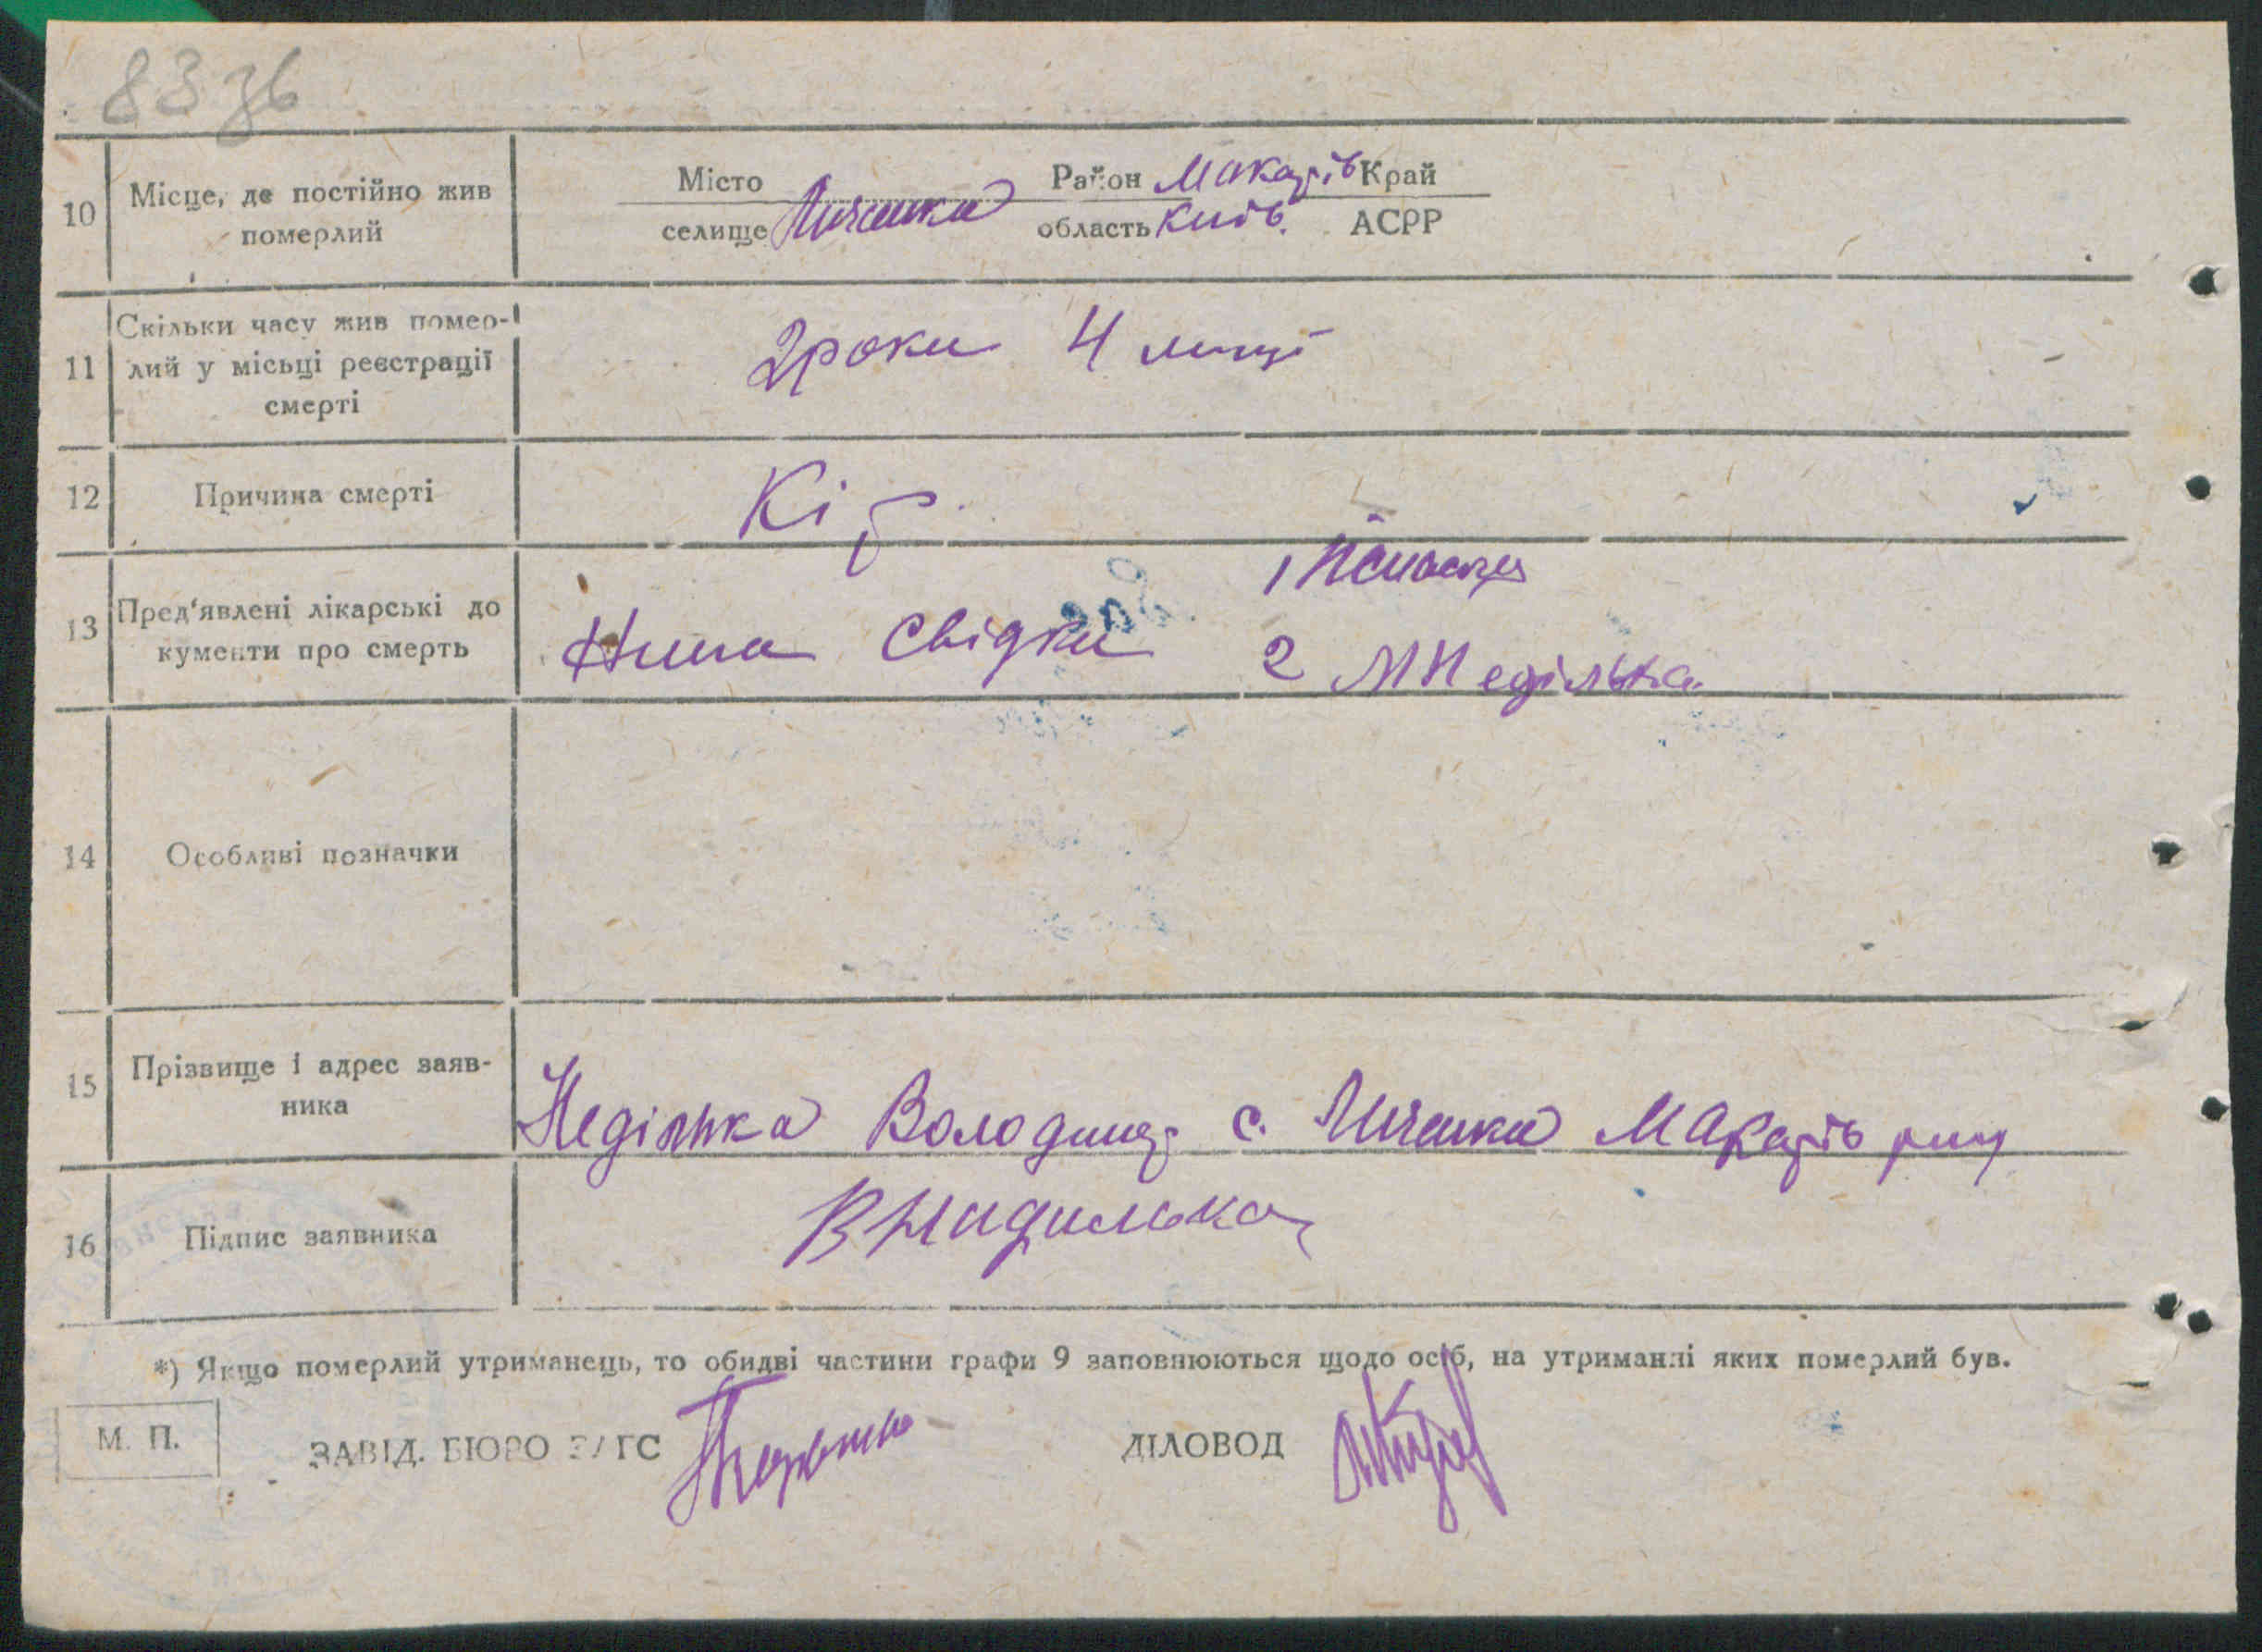 83 зв
10 Місце, де постійно жив померлий
Місто Район Макарів Край
селище Личанка область Київ. АСРР
11 Скільки часу жив помер-
лий у місьці реєстрації
смерті
2 роки 4 місяці
12 Причина смерті
Кір
13 Пред'явлені лікарські до
кументи про смерть
Нема Свідки 1
2 М Неділька
14 Особливі позначки
15 Прізвище і адрес заяв-
ника
Неділька Володимир с. Личанка Макарів
16 Підпис заявника
В Нидилька
*) Якщо померлий утриманець, то обидві частини графи 9 заповнюються щодо осіб, на утриманні яких померлий був.
М. П.
ЗАВІД. БЮРО ЗАГС
ДІЛОВОД